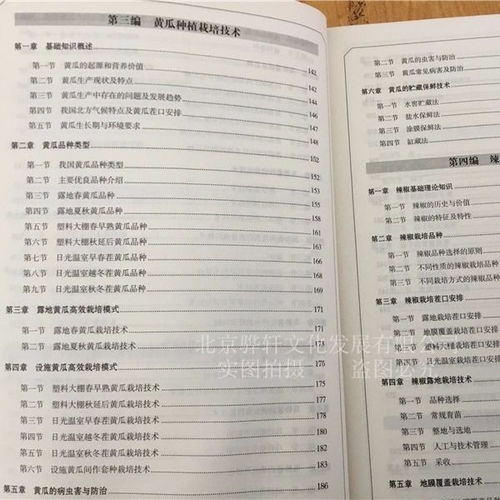 第三编 黄瓜种植栽培技术
第一章 基础知识概述
第一节 黄瓜的起源和营养价值 142
第二节 黄瓜生产现状及特点 142
第三节 黄瓜生产中存在的问题及发展趋势 144
第四节 我国北方气候特点及黄瓜茬口安排 146
第五节 黄瓜生长期与环境要求 147
第二章 黄瓜品种类型 148
第一节 我国黄瓜品种类型 152
第二节 主要优良品种介绍 152
第三节 露地春黄瓜品种 153
第四节 露地夏秋黄瓜品种 155
第五节 塑料大棚春早熟黄瓜品种
第六节 塑料大棚秋延后黄瓜品种
第七节 日光温室早春茬黄瓜品种
第八节 日光温室越冬茬黄瓜品种
第九节 日光温室秋冬茬黄瓜品种 169
第三章 露地黄瓜高效栽培模式 171
第一节 露地春黄瓜栽培技术 171
第二节 露地夏秋黄瓜栽培技术
第四章 设施黄瓜高效栽培模式 175
第一节 塑料大棚春早熟黄瓜栽培技术 175
第二节 塑料大棚秋延后黄瓜栽培技术
第三节 日光温室早春茬黄瓜栽培技术 178
第四节 日光温室越冬茬黄瓜栽培技术
第五节 日光温室秋冬茬黄瓜栽培技术
第六节 设施黄瓜间作套种栽培技术
第五章 黄瓜的病虫害与防治 186
第二节 黄瓜的虫害与防治
第三节 黄瓜常见病害及防治
第六章 黄瓜的贮藏保鲜技术
第一节 水窖贮藏法
第二节 盐水保鲜法
第三节 涂膜保鲜法
第四节 缸藏法
第四编 辣
第一章 辣椒基础理论知识
第一节 辣椒的历史与价值
第二节 辣椒的特征及特性
第二章 辣椒栽培品种
第一节 辣椒品种选择的原则
第二节 不同性质的辣椒栽培品种
第三节 不同栽培方式的辣椒品种
第三章 辣椒栽培茬口安排
第一节 露地栽培茬口安排
第二节 地膜覆盖栽培茬口安排
第三节 大棚栽培茬口安排
第四节 日光温室栽培茬口安排
第四章 辣椒露地栽培技术
第一节 品种选择
第二节 常规育苗
第三节 整地与选地
第四节 人工与技术管理
第五节 采收
第五章 地膜覆盖栽培技术
北京骅轩文化发展有限公司
实图拍摄 盗图必究